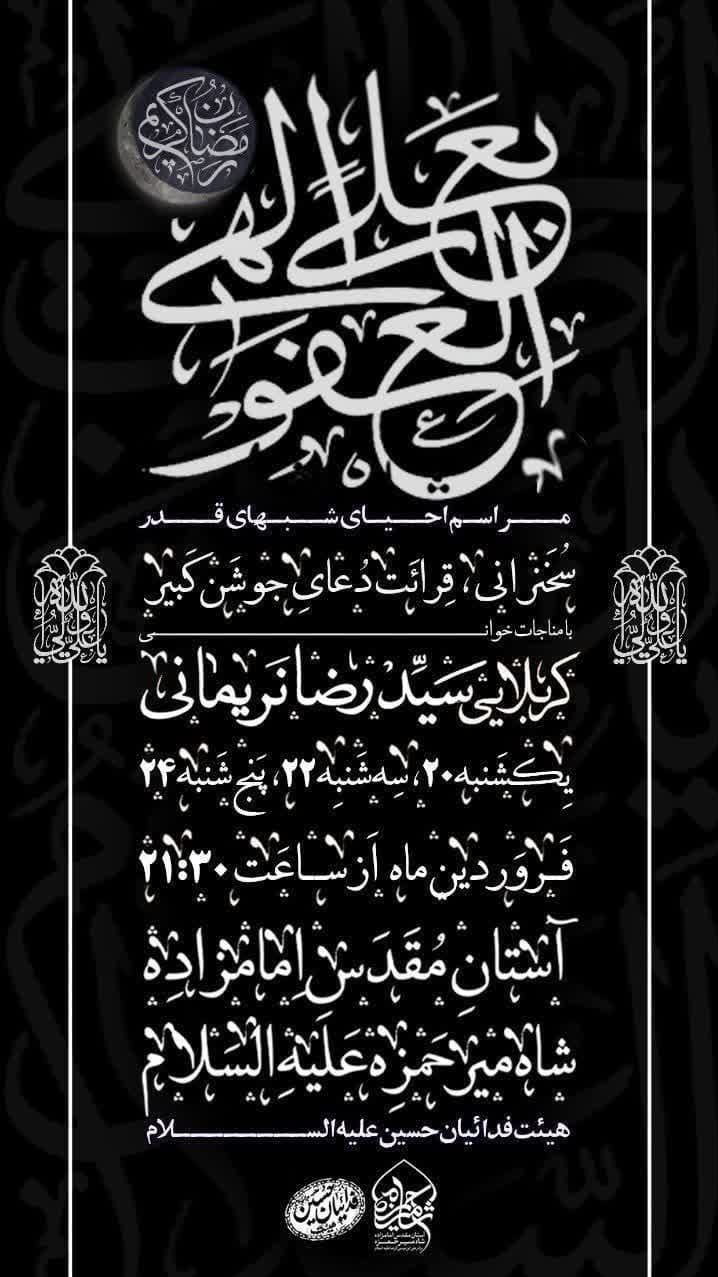 رمضان کریم
بعلی الهی العفو
مراسم احیای شبهای قدر
سُخَنرانی، قِرائَت دُعایِ جوشَن کَبیر
با مناجات خوانی
کربلایی سَیِّد رضا نَریمانی
یِکشَنبه ۲۰، سه شَنبه ۲۲، پَنج شَنبه ۲۴
فَروَردین ماه اَز ساعَت ۲۱:۳۰
آستانِ مُقَدَس اِمامزاده
شاه میر حَمزه عَلَیهِ السَلام
هیئت فدائیان حسین علیه السلام
یا علی ولی الله
یا علی ولی الله
فدائیان حسین
آستان مقدس امامزاده
شاه میر حمزه